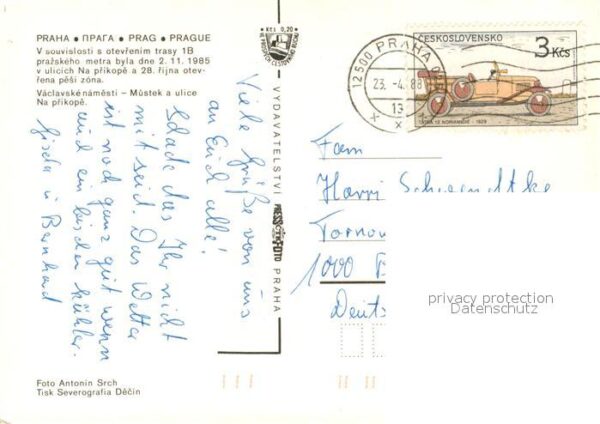 PRAHA • ПРАГА • PRAG • PRAGUE
V souvislosti s otevřením trasy 1B
pražského metra byla dne 2. 11. 1985
v ulicích Na příkopě a 28. října otev-
řena pěší zóna.
Václavské náměstí – Můstek a ulice
Na příkopě.
Viele Grüße von uns
an Euch alle!
Schade das Ihr nicht
mit seid. Das Wetter
ist noch ganz gut wenn
auch ein bischen kühler.
Gisela u Bernhard
Foto Antonín Srch
Tisk Severografia Děčín
Kčs 0,20
VYDAVATELSTVÍ PRESSFOTO PRAHA
12500 PRAHA
23. -4. 88
13
ČESKOSLOVENSKO
3 Kčs
TATRA 12 NORMANDIE - 1929
Fam
Harri
Tornow
1000
Deuts
privacy protection
Datenschutz